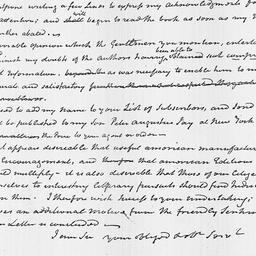 writing a few lines to express my acknowledgments for
attention; and shall begin to read the book as soon as my
further abated.
favorable opinion which the Gentlemen you mention, entertain
diminish my doubts of the Authors having obtained such comp
been able to
and information, as was necessary to enable him to m
and satisfactory
to add my name to your list of Subscribers, and Son
be published to my Son Peter Augustus Jay at New York
the two to you again on
appear desireable that useful american manufactu
Encouragement, and that american Editions
multiply - it is also desireable that those of our Citizens
themselves to interesting literary pursuits should find Induce
in them. I therefore wish success to your undertaking;
an additional motive from the friendly Sentim
your Letter is concluded
I am Sir your obliged & obt Servt